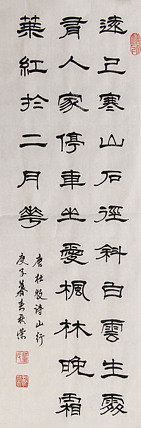 遠上寒山石徑斜白雲生處
有人家停車坐愛楓林晚霜
葉紅於二月花
唐杜牧詩山行
庚子暮春